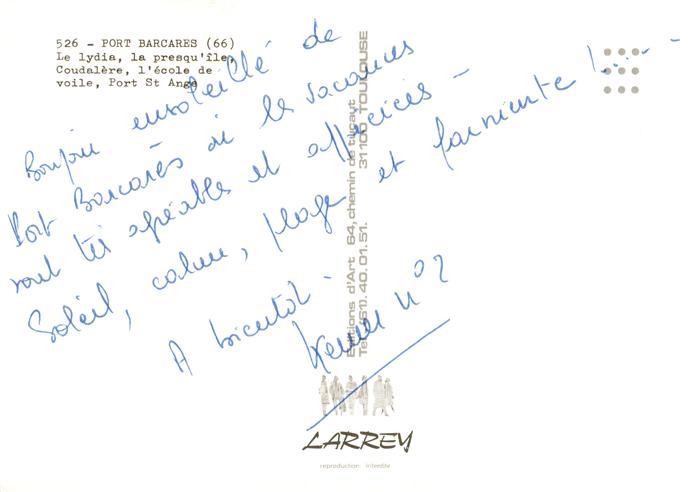 526 - PORT BARCARES (66)
Le lydia, la presqu'île,
Coudalère, l'école de
voile, Port St Ange
Bonjour ensoleillé de
Port Barcarès où les vacances
sont très agréables et appréciées -
Soleil, calme, plage et farniente !....--
A bientôt -
n° 2
Editions d'Art 64, chemin de tucaut
Tel (61). 40.01.51. 31100 TOULOUSE
LARREY
reproduction interdite